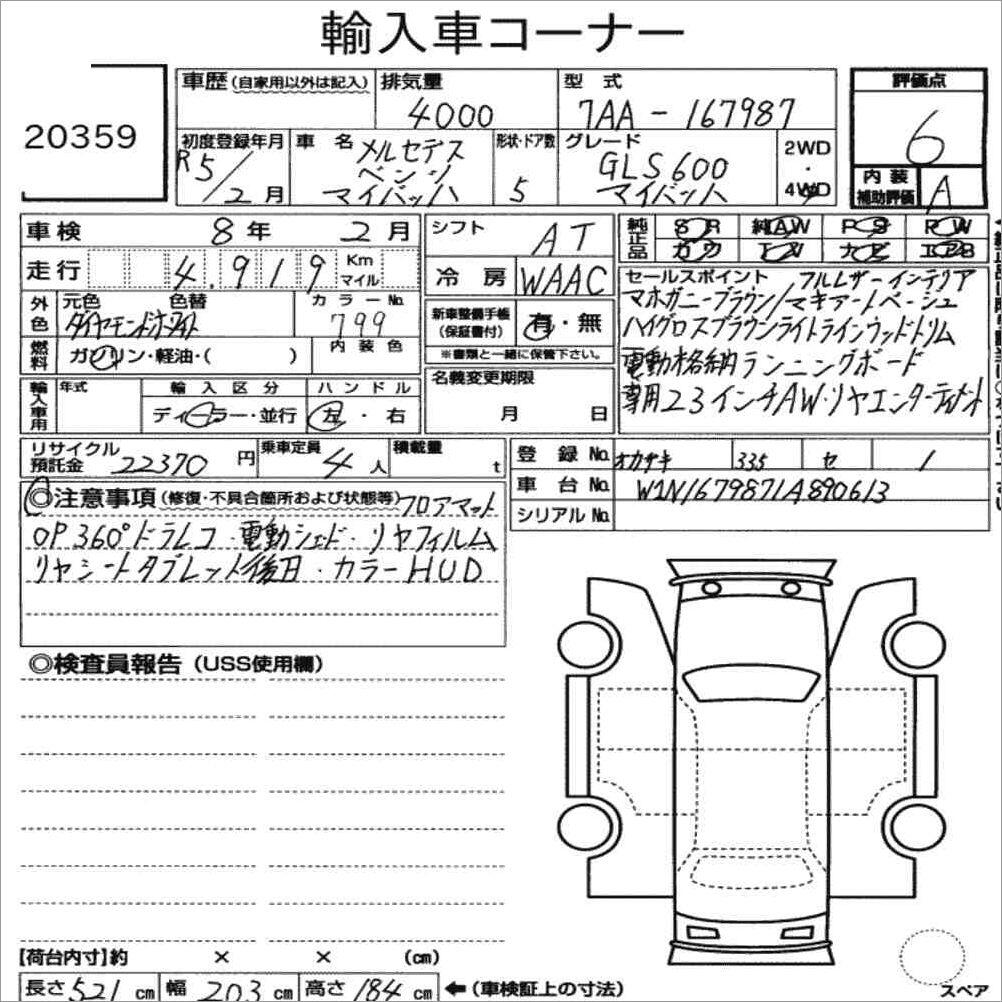 輸入車コーナー
20359
車歴(自家用以外は記入) 排気量 4000 型 式 7AA-167987 評価点 6
初度登録年月 R5/2月 車 名 メルセデス ベンツ マイバッハ 形状・ドア数 5 グレード GLS600 マイバッハ 2WD・4WD 内装補助評価 A
車検 8年 2月 シフト AT 純正品 SR 純AW PS PW
走行 4,919 Km マイル 冷房 WAAC カワ TV ナビ エアB
外色 元色 色替 ダイヤモンドホワイト カラーNo. 799 新車整備手帳(保証書付) 有・無
燃料 ガソリン・軽油・( ) 内装色 ※書類と一緒に保管下さい。
セールスポイント フルレザーインテリア
マホガニーブラウン/マキアートベージュ
ハイグロスブラウンライトラインウッドトリム
電動格納ランニングボード
専用23インチAW・リヤエンターテイメント
輸入車用 年式 輸入区分 ディーラー・並行 ハンドル 左・右 名義変更期限 月 日
リサイクル預託金 22370円 乗車定員 4人 積載量 t
登録No. オカザキ 335 セ 1
車台No. W1N1679871A890613
シリアルNo.
◎注意事項(修復・不具合箇所および状態等)フロアマット
OP360°ドラレコ・電動シェド・リヤフィルム
リヤシートタブレット後日・カラーHUD
◎検査員報告(USS使用欄)
【荷台内寸】約 × × (cm)
長さ 521 cm 幅 203 cm 高さ 184 cm ←(車検証上の寸法)
スペア